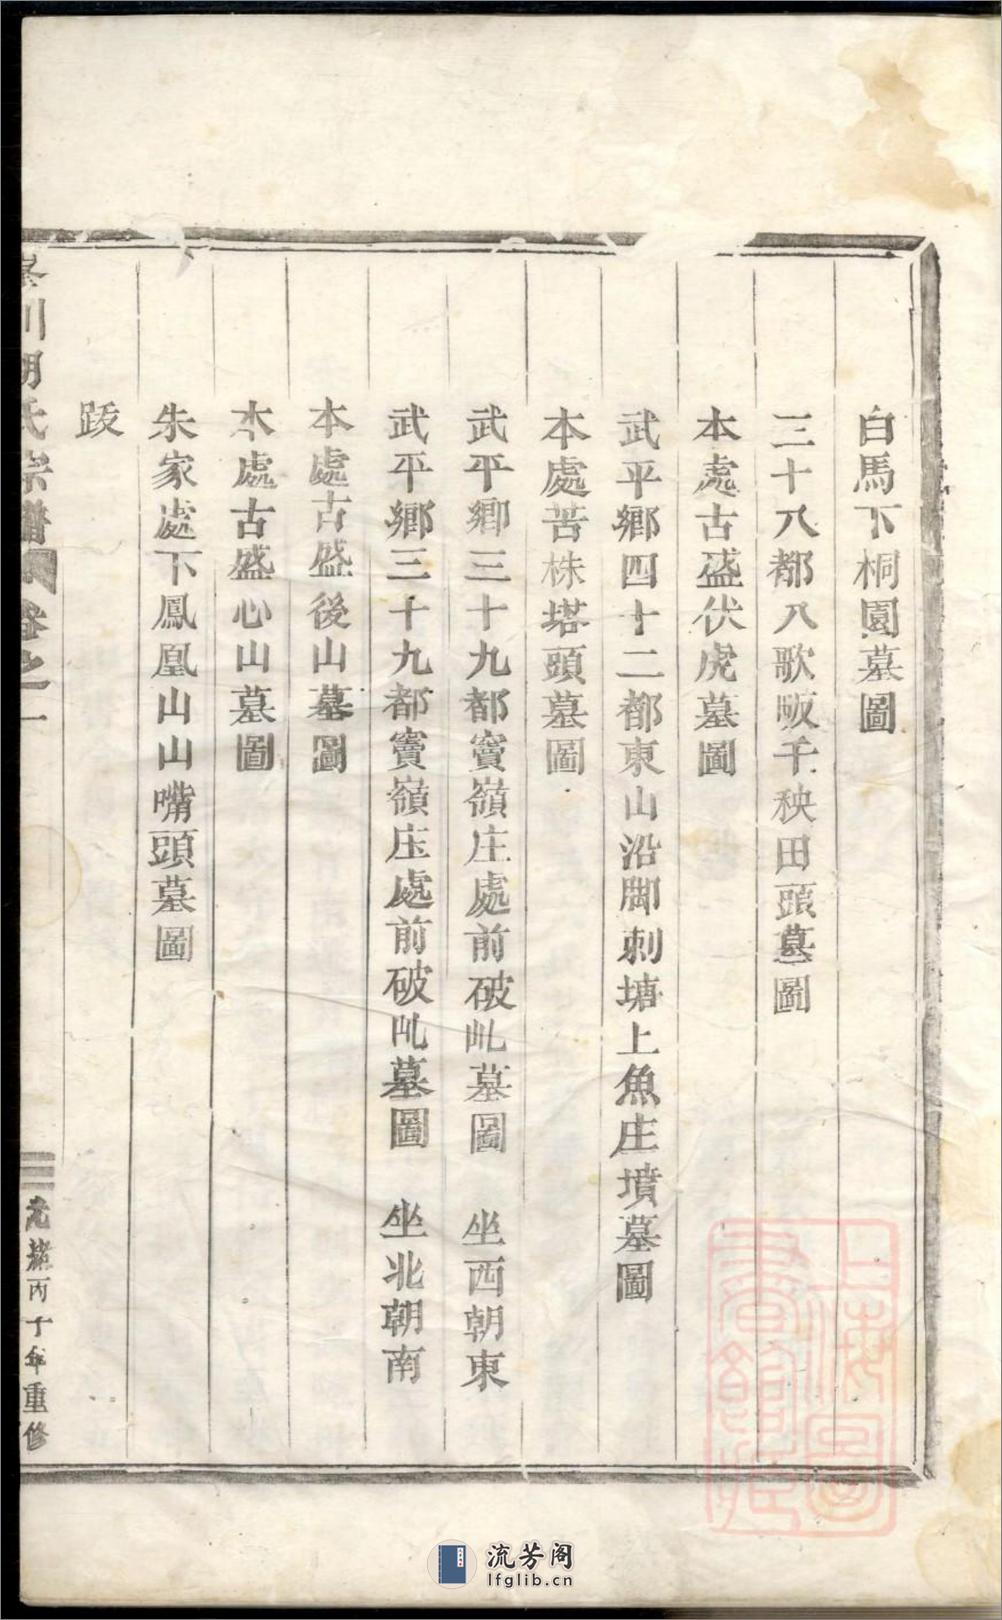 白馬下桐園墓圖
三十八都八歌畈千秧田頭墓圖
本處古盛伏虎墓圖
武平鄉四十二都東山沿脚刺塘上魚庄墳墓圖
本處苦株塔頭墓圖
武平鄉三十九都寶嶺庄處前破乢墓圖　坐西朝東
武平鄉三十九都寶嶺庄處前破乢墓圖　坐北朝南
本處古盛後山墓圖
本處古盛心山墓圖
朱家處下鳳凰山山嘴頭墓圖
跋
川胡氏宗譜　卷之一　光緒丙子年重修
上海圖書館藏
流芳阁
lfglib.cn